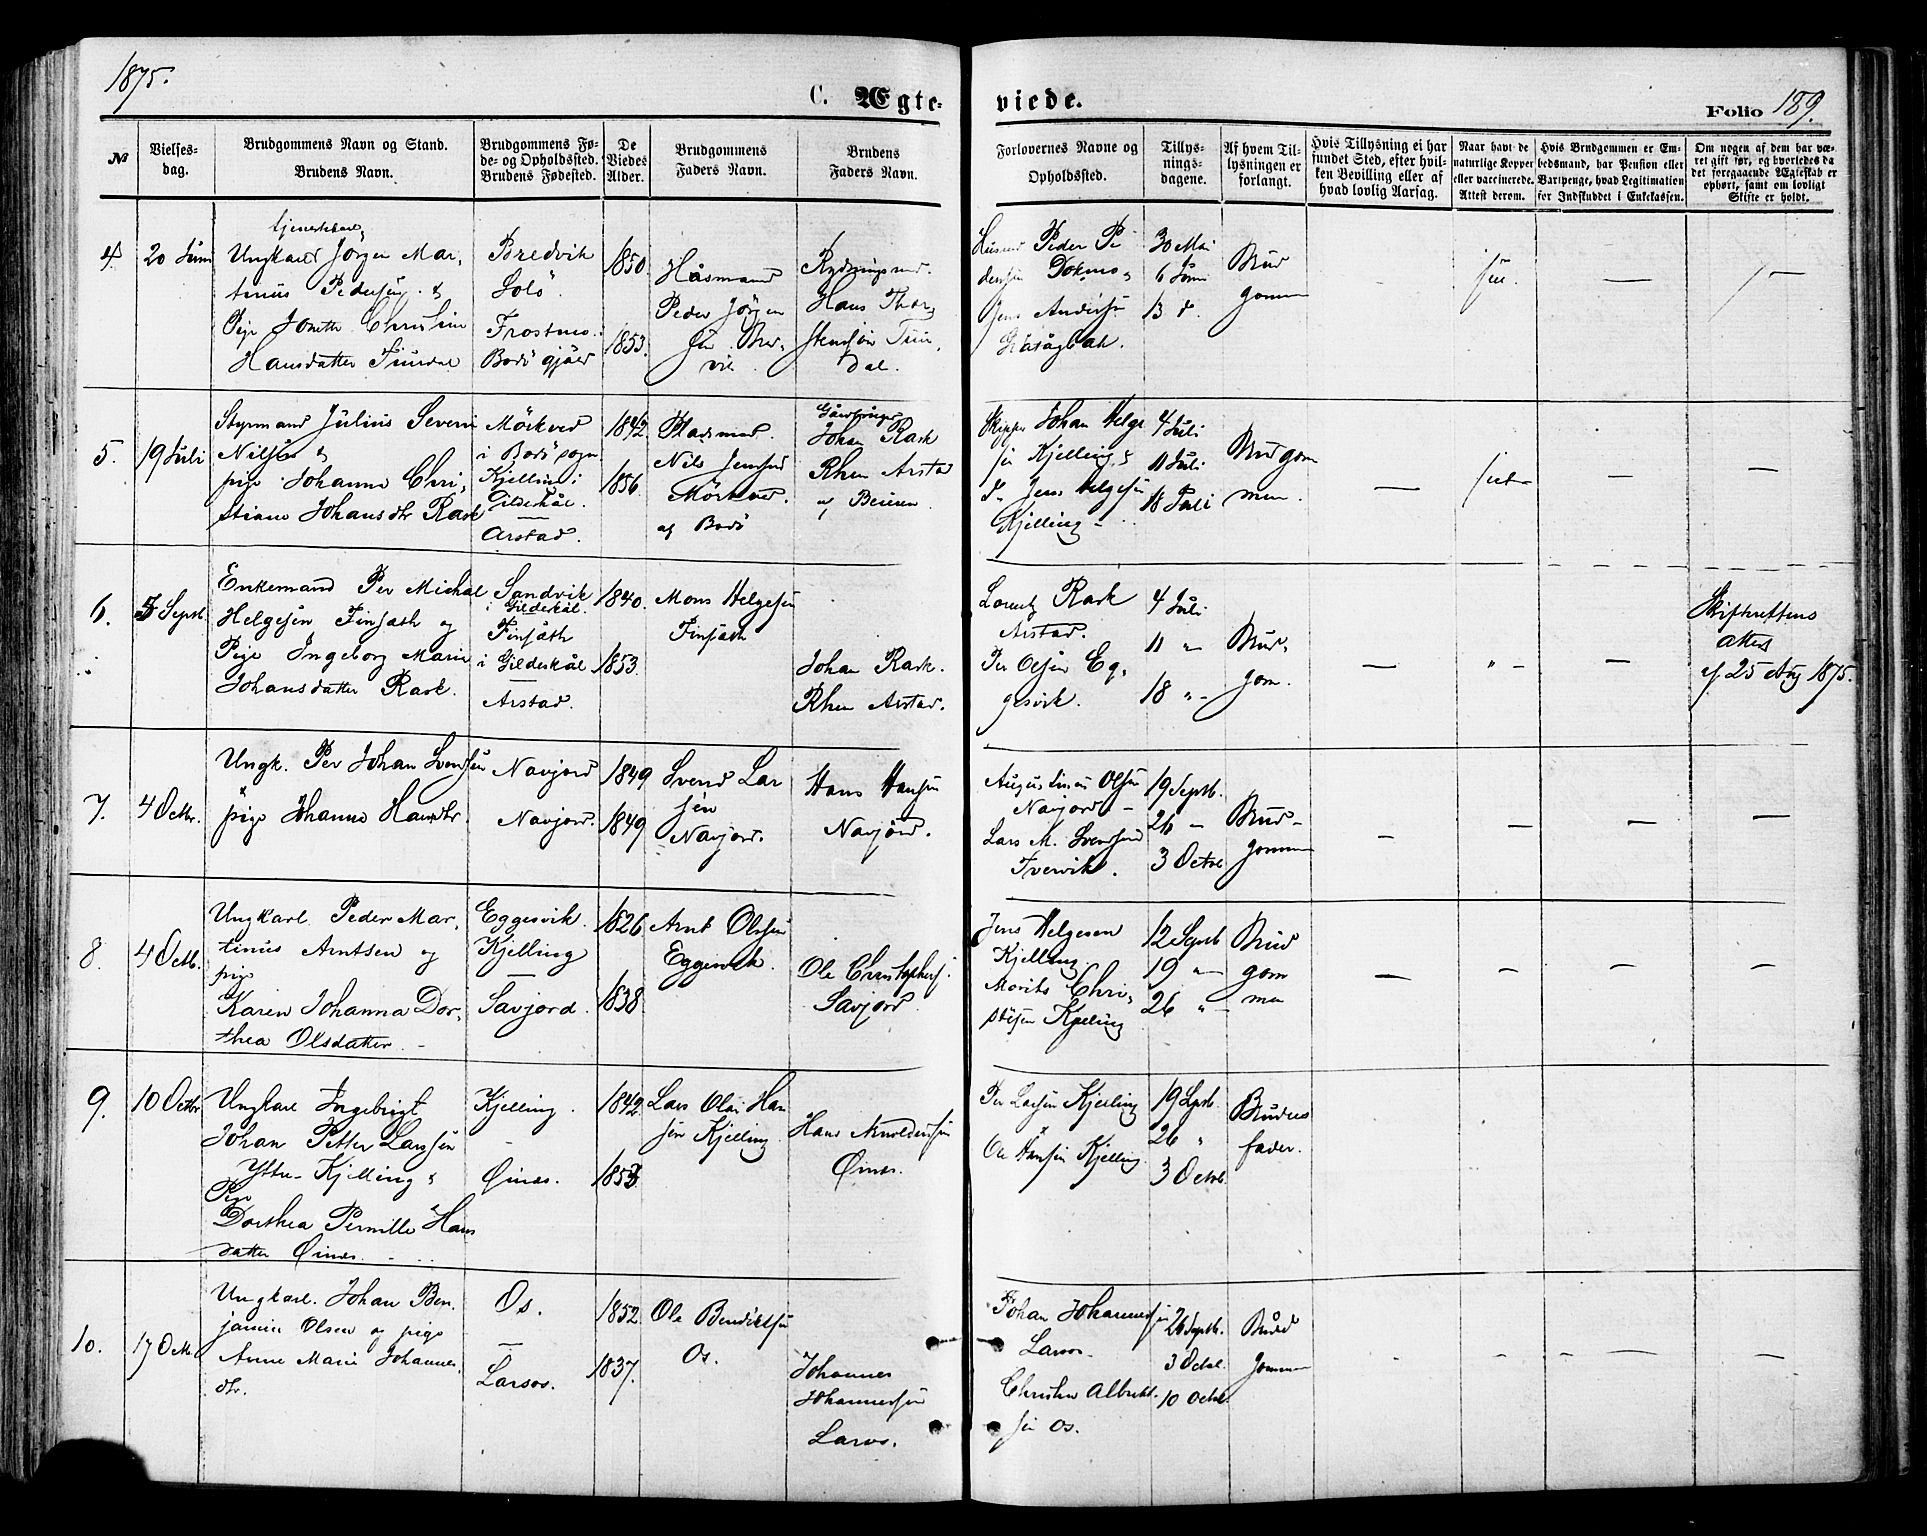 1875.
C. Ægte-
viede.
Folio 189.
№
Vielses-
dag.
Brudgommens Navn og Stand.
Brudens Navn.
Brudgommens Fø-
de- og Opholdssted.
Brudens Fødested.
De
Viedes
Alder.
Brudgommens
Faders Navn.
Brudens
Faders Navn.
Forlovernes Navne og
Opholdssted.
Tillys-
nings-
dagene.
Af hvem Til-
lysningen er
forlangt.
Hvis Tillysning ei har
fundet Sted, efter hvil-
ken Bevilling eller af
hvad lovlig Aarsag.
Naar havt de
naturlige Kopper
eller vaccinerede.
Attest derom.
Hvis Brudgommen er Em-
bedsmand, har Pension eller
Vartpenge, hvad Legitimation
for Indskuddet i Enkekassen.
Om nogen af dem har væ-
ret gift før, og hvorledes da
det foregaaende Ægteskab er
ophørt, samt om lovligt
Skifte er holdt.
4.
20 Juni
Ungkarl Jörgen Mar-
tinus Pedersen &
Pige Christin
Hansdatter
Bredvik
Solö
Frostmo.
Bodö gjæld
1850.
1853.
Husmand
Peder Jörgen
sen Bred-
vik
Rydningsmd.
Hans Thor
stensen
dal.
Husmd Peder Pe
dersen
Jens Andersen
30 Mai
6 Juni
13 d.
Brud
gommen
5.
19 Juli
Styrmand Julius Severin
Nilsen &
pige Johanna Chri-
stiane Johansdtr Rask
Mörkved
i Bodö sogn
Kjelling i
Gildeskål.
Arstad.
1842.
1856.
Pladsmd.
Nils Jensen
Mörkved.
af Bodö
Gaardbruger
Johan Rask
Rhen Arstad
af Beieren
Skipper Johan Helge
sen Kjelling &
do Jens Helgesen
Kjelling -
4 Juli
11 Juli
18 Juli
Brudgom
men.
6.
5 Septb.
Enkemand Per Michal
Helgesen Finsæth og
Pige Ingeborg Marie
Johansdatter Rask.
Sandvik
i Gildeskål
Finsæth
i Gildeskål
Arstad.
1840.
1853.
Mons Helgesen
Finsæth
Johan Rask.
Rhen Arstad.
Lorentz Rask
Arstad.
Per Olsen Eg-
gesvik.
4 Juli
11 "
18 "
Brud-
gom.
Skifterettens
Attest
af 25 Aug 1875.
7.
4 Octbr.
Ungk. Per Johan Svendsen
&
pige Johanna Hansdtr.
Navjord
Navjord.
1849
1849
Svend Lar
sen
Navjord.
Hans Hansen
Navjord.
Augustinus Olsen
Navjord -
Lars M. Svendsen
Tvervik.
19 Septb.
26 -
3 Octbr
Brud-
gommen
8.
4 Octb.
Ungkarl Peder Mar-
tinus Arntsen og
pige
Karen Johanna Dor-
thea Olsdatter -
Eggesvik
Kjelling
Savjord.
1826
1838
Arnt Olssen
Eggesvik.
Ole Christophers.
Savjord.
Jens Helgesen
Kjelling.
Morits Chri-
stesen Kjelling
12 Septb
19 "
26 "
Brud
gom
men
9.
10 Octbr
Ungkarl Ingebrigt
Johan Petter Larssen
Yttre-Kjelling &
Pige
Dorthea Pernille Hans
datter Øines. -
Kjelling.
Øines.
1842
1853
Lars Olai Han
sen Kjelling
Hans Arnoldussen
Øines.
Per Larsen Kjelling
Ole Hansen Kjelling
19 Septb.
26 "
3 Octbr.
Brudens
fader.
10.
17 Octbr.
Ungkarl. Johan Ben
jamin Olsen og pige
Anne Marie Johannes
dtr.
Os.
Larsos.
1852.
1837.
Ole Bendiktsen
Os.
Johannes
Johannessen
Larsos.
Johan Johannessen
Larsos.
Christen Albrikt-
sen Os.
26 Septb.
3 Octbr.
10 Octbr.
Brud
gommen